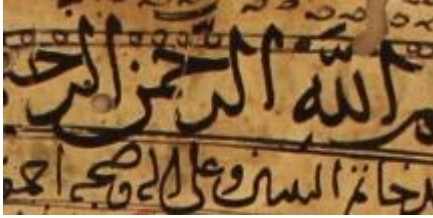 م الله الرحمن الرحـ
خاتم النبيين وعلى اله وصحبه اجمعـ